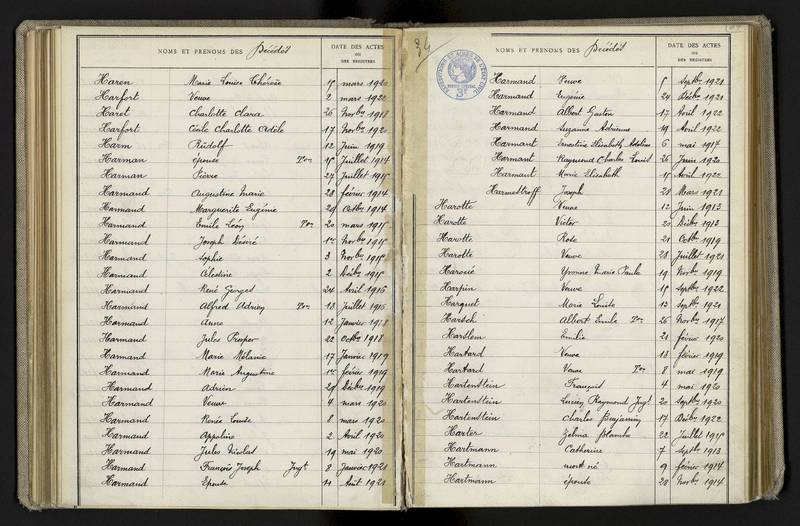 NOMS ET PRÉNOMS DES Décédés
DATE DES ACTES
OU
DES REGISTRES
Haren Marie Louise Thérèse mars 1920
Harfort Veuve 2 mars 1922
Haret Charlotte Clara 26 Novbre 1918
Harfort Cécile Charlotte Adèle 17 Novbre 1920
Harm Rudolf 12 Juin 1919
Harman épouse Juillet 1914
Harman Pierre 27 Juillet 1915
Harmand Augustine Marie 28 février 1914
Harmand Marguerite Eugénie 29 Octbre 1914
Harmand Emile Léon 20 mars 1915
Harmand Joseph Désiré 1er Novbre 1915
Harmand Sophie 3 Novbre 1915
Harmand Célestine 2 Décbre 1915
Harmand René Georges 24 Avril 1916
Harmand Alfred Adrien 13 Juillet 1916
Harmand Anne 12 Janvier 1918
Harmand Jules Prosper 22 Octbre 1918
Harmand Marie Mélanie 17 Janvier 1919
Harmand Marie Augustine 1er février 1919
Harmand Adrien 29 Décbre 1919
Harmand Veuve 4 mars 1920
Harmand Renée Louise 8 mars 1920
Harmand Appoline 2 Avril 1920
Harmand Jules Nicolas 19 mai 1920
Harmand François Joseph Jugt 8 Janvier 1921
Harmand Epouse 11 Août 1921
34
NOMS ET PRÉNOMS DES Décédés
DATE DES ACTES
OU
DES REGISTRES
Harmand Veuve Septbre 1921
Harmand Eugénie 24 Décbre 1921
Harmand Albert Gaston 17 Avril 1922
Harmand Suzanne Adrienne 19 Avril 1922
Harmant Ernestine Elisabeth 6 mai 1917
Harmant Raymond Charles Louis 26 Juin 1920
Harmant Marie Elisabeth Avril 1922
Harmestroff Joseph 28 Mars 1921
Harotte Veuve 12 Juin 1913
Harotte Victor 20 Décbre 1913
Harotte Rose 21 Octbre 1919
Harotte Veuve 21 Juillet 1921
Haroué Yvonne Marie Paule 19 Novbre 1919
Harpin Veuve Septbre 1922
Harquet Marie Louise 13 Septbre 1921
Harsch Albert Emile 26 Novbre 1917
Harslem Emilie 21 février 1920
Hartard Veuve 13 février 1919
Hartard Veuve 8 mai 1919
Hartenstein François 4 mai 1920
Hartenstein Lucien Raymond Jugt 20 Septbre 1920
Hartenstein Charles Benjamin 17 Décbre 1922
Harter Zelma Blanche 22 Juillet 1915
Hartmann Catherine 7 Septbre 1913
Hartmann mort né 9 février 1914
Hartmann épouse 28 Novbre 1914